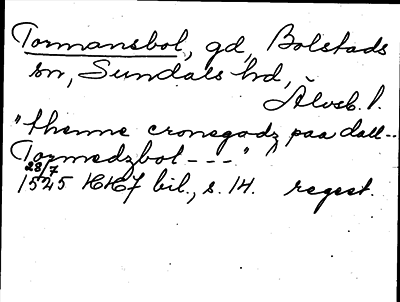 Tormansbol, gd, Bolstads
sn, Sundals hd,
Älvsb. l.
"thenne cronegadz paa dall--
Tormedzbol ---"
28/7
1545 HH7 bil., s. 14. regest.